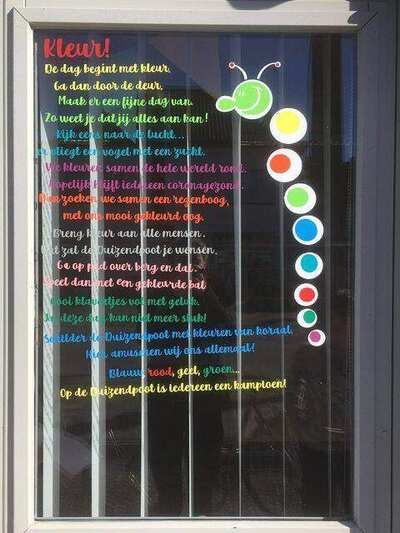 Kleur!
De dag begint met kleur.
Ga dan door de deur.
Maak er een fijne dag van.
Zo weet je dat jij alles aan kan!
Kijk eens naar de lucht...
er vliegt een vogel met een zucht.
We kleuren samen de hele wereld rond.
Hopelijk blijft iedereen coronagezond.
Dan zoeken we samen een regenboog,
met ons mooi gekleurd oog.
Breng kleur aan alle mensen.
Dat zal de Duizendpoot je wensen.
Ga op pad over berg en dal.
Speel dan met een gekleurde bal
Gooi klavertjes vol met geluk.
deze dag kan niet meer stuk!
Schilder de Duizendpoot met kleuren van koraal.
Hier amuseren wij ons allemaal!
Blauw, rood, geel, groen...
Op de Duizendpoot is iedereen een kampioen!